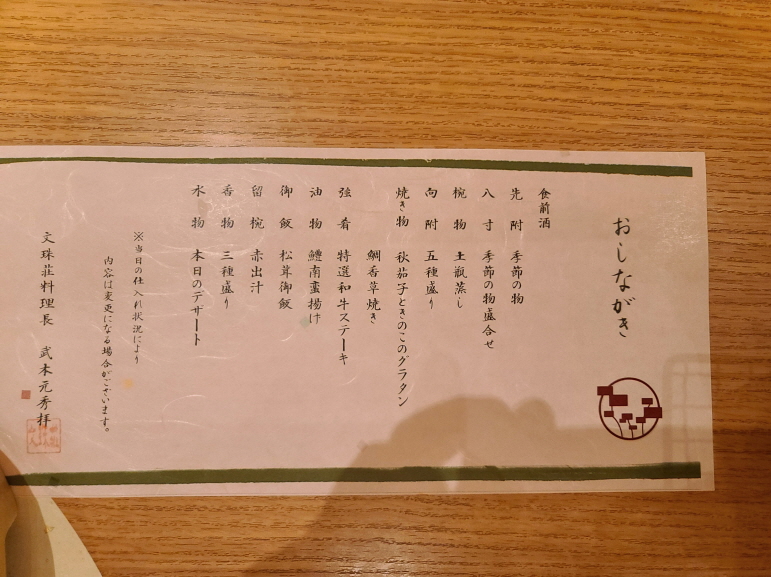 おしながき
食前酒
先附 季節の物
八寸 季節の物盛合せ
椀物 土瓶蒸し
向附 五種盛り
焼き物 秋茄子ときのこのグラタン
鯛香草焼き
強肴 特選和牛ステーキ
油物 鱧南蛮揚げ
御飯 松茸御飯
留椀 赤出汁
香物 三種盛り
水物 本日のデザート
※当日の仕入れ状況により
内容は変更になる場合がございます。
文珠荘料理長 武本元秀拝